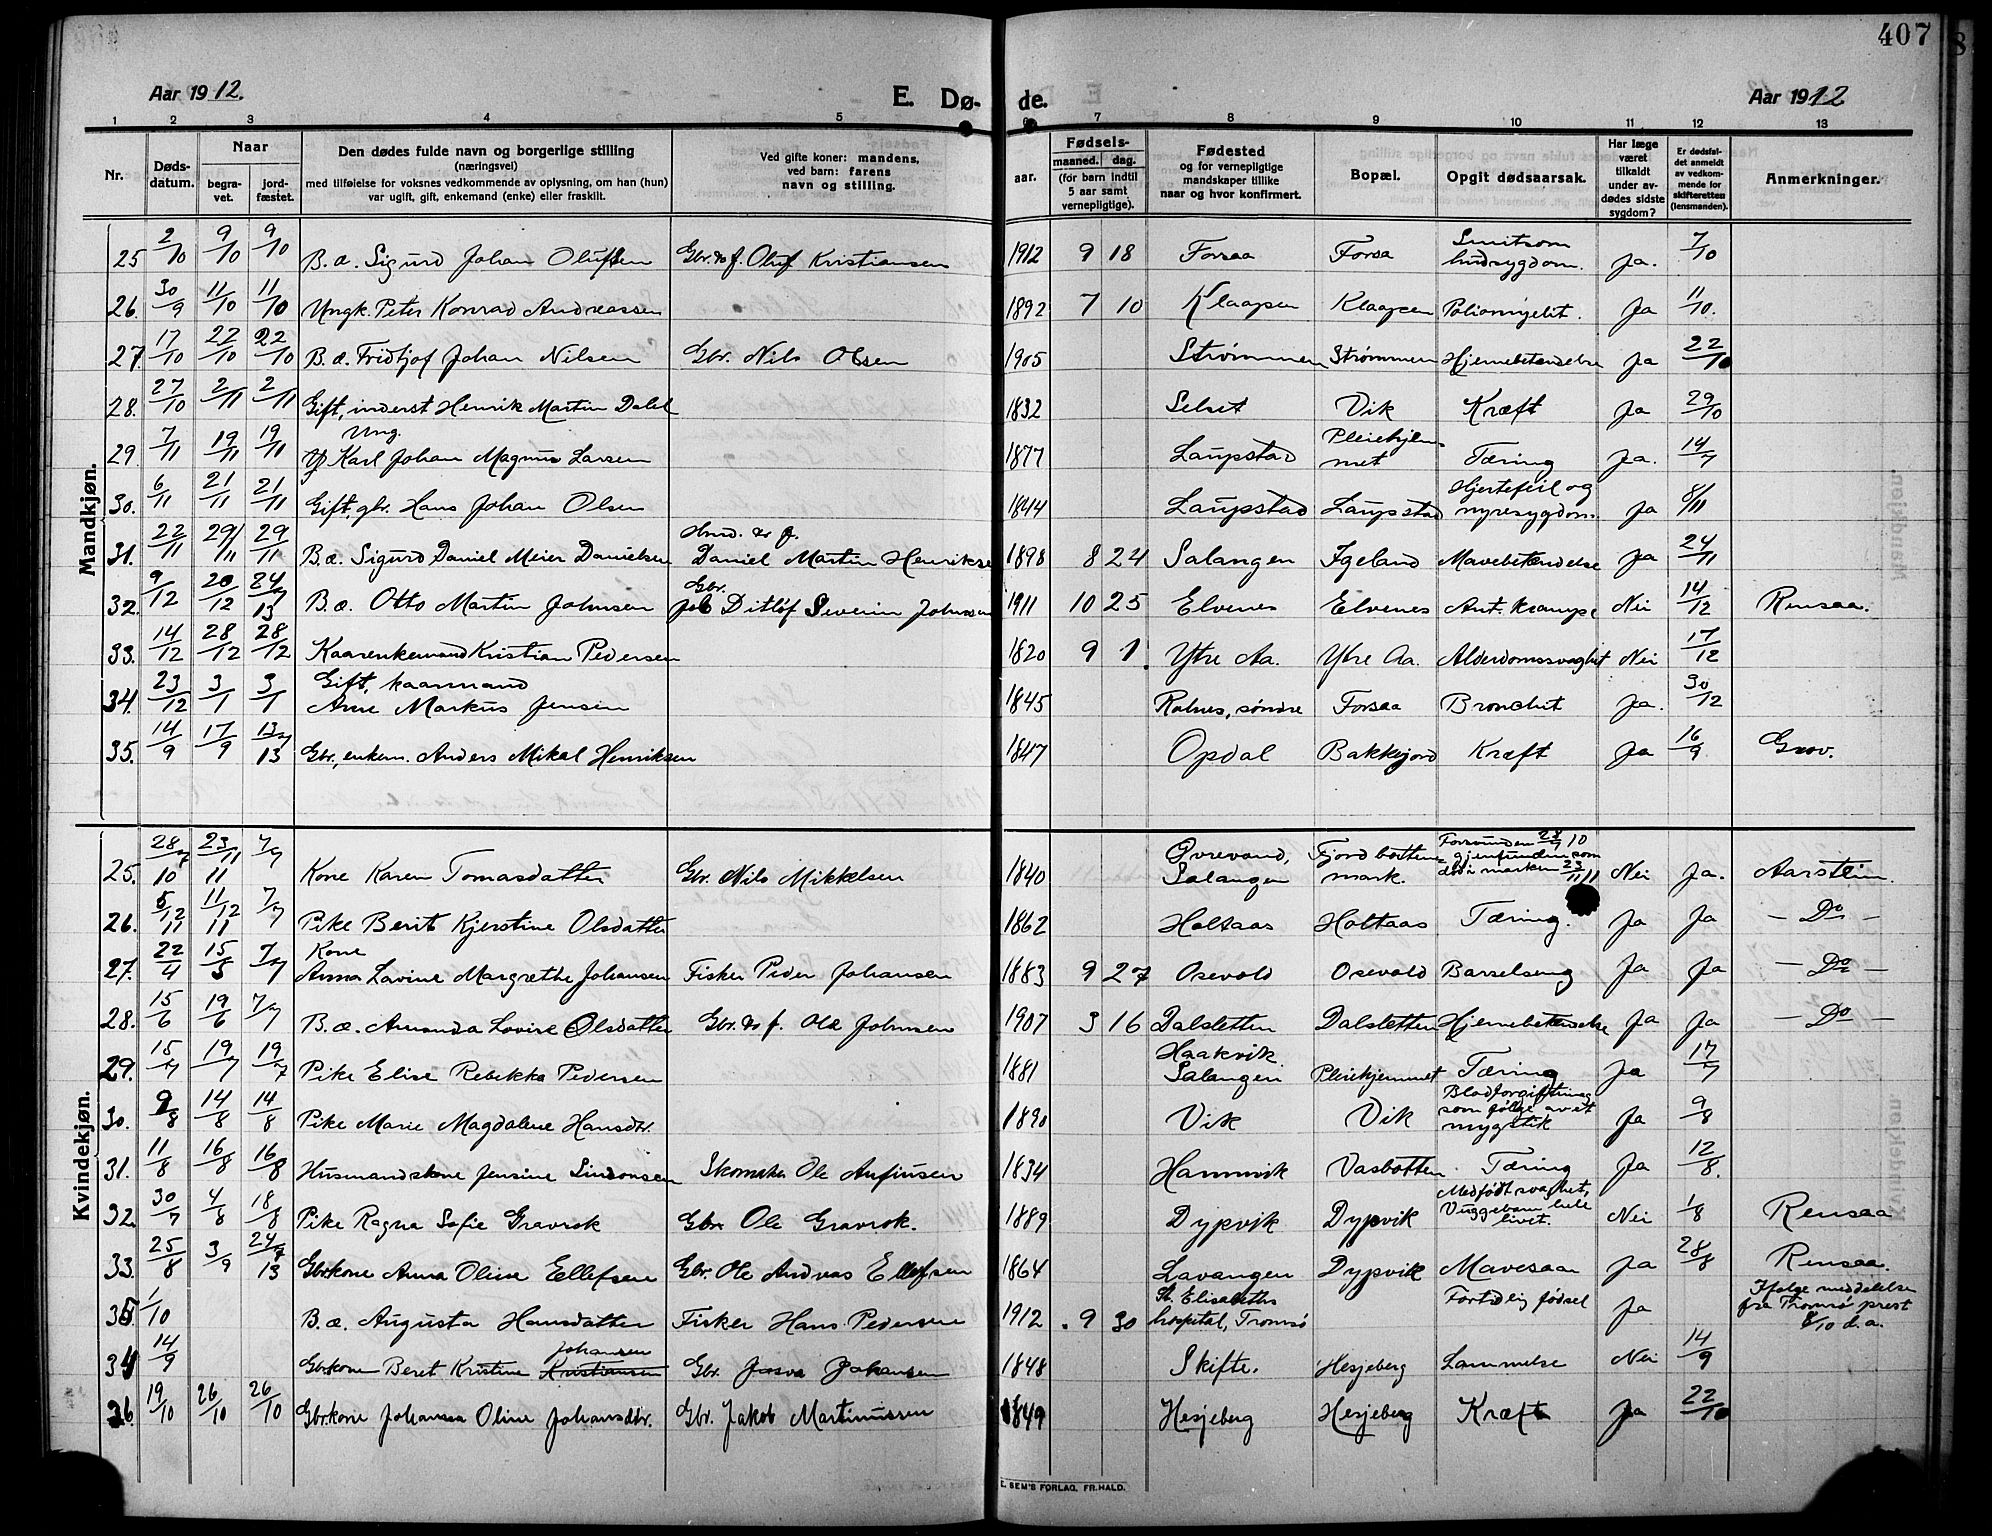 407
Aar 1912.
E. Dø- de.
Aar 1912
1 2 3 4 5 6 7 8 9 10 11 12 13
Nr.
Dødsdatum.
Naar
begravet.
jordfæstet.
Den dødes fulde navn og borgerlige stilling
(næringsvei)
med tilføielse for voksnes vedkommende av oplysning, om han (hun)
var ugift, gift, enkemand (enke) eller fraskilt.
Ved gifte koner: mandens,
ved barn: farens
navn og stilling.
Fødsels-
aar.
maaned.
dag.
(for barn indtil
5 aar samt
vernepligtige).
Fødested
og for vernepligtige
mandskaper tillike
naar og hvor konfirmert.
Bopæl.
Opgit dødsaarsak.
Har læge
været
tilkaldt
under avdødes sidste
sygdom?
Er dødsfaldet anmeldt
av vedkommende for
skifteretten
(lensmanden).
Anmerkninger.
Mandkjøn.
25 2/10 9/10 9/10 B.a. Sigurd Johan Olufsen Gbr. & f. Oluf Kristiansen 1912 9 18 Forsaa Forsa Smitsom hudsygdom. Ja. 7/10
26. 30/9 11/10 11/10 Ungk. Peter Konrad Andreassen 1892 7 10 Klaapen Klaapen Poliomyelit. Ja 11/10.
27. 17/10 22/10 22/10 B.æ. Fridtjof Johan Nilsen Gbr. Nils Olsen 1905 Strømmen Strømmen Hjernebetændelse Ja 22/10
28. 27/10 2/11 2/11 Gift, inderst Henrik Martin Dalel 1832 Selset Vik Kræft Ja 29/10
29. 7/11 19/11 19/11 Ung. Karl Johan Magnus Larsen 1877 Laupstad Pleiehjemmet Tæring Ja. 14/7
30. 6/11 21/11 21/11 Gift, gbr. Hans Johan Olsen 1844 Laupstad Laupstad Hjertefeil og nyresygdom. Ja 8/11
31. 22/11 29/11 29/11 B.æ. Sigurd Daniel Meier Danielsen Hmd. & f. Daniel Martin Henrikse 1898 8 24 Salangen Igeland Mavebetændelse Ja 24/11
32. 9/12 20/12 24/7 13 B.æ. Otto Martin Johnsen Gbr. Ditløf Severin Johnsen 1911 10 25 Elvenes Elvenes Ant. krampe Nei 14/12 Rensaa.
33. 14/12 28/12 28/12 Kaarenkemand Kristian Pedersen 1820 9 1 Ytre Aa. Ytre Aa. Alderdomssvaghet Nei 17/12
34. 23/12 3/1 3/1 Gift, kaarmand Arne Markus Jensen 1845 Rolnes, søndre Forsaa Bronchit Ja. 30/12
35. 14/9 17/9 13/7 13 Gbr., enkem. Anders Mikal Henriksen 1847 Opdal Bakkejord Kræft Ja 16/9 Grov.
Kvindekjøn.
25. 28/7 10 23/11 11 7/7 Kone Karen Tomasdatter Gbr. Nils Mikkelsen 1840 Øvrevand, Salangen Fjordbotten mark. Forsvunden 28/7 10 gjenfunden som død i marken 23/11 11 Nei Ja. Aarstein.
26. 5/12 11 11/12 11 7/7 Pike Berit Kjerstine Olsdatter 1862 Holtaas Holtaas Tæring. Ja Ja — Do —
27. 22/4 15/5 7/7 Kone Anna Lavine Margrethe Johansen Fisker Peder Johansen 1883 9 27 Osevold Osevold Barselseng Ja Ja — Do —
28. 15/6 19/6 7/7 B.æ. Amanda Lovise Olsdatter Gbr. & f. Ole Johnsen 1907 3 16 Dalsletten Dalsletten Hjernebetændelse Ja Ja — Do —
29. 15/7 19/7 19/7 Pike Elise Rebekka Pedersen 1881 Haakvik Salangen Pleiehjemmet Tæring Ja 17/7
30. 9/8 14/8 14/8 Pike Marie Magdalene Hansdtr. 1890 Vik Vik Blodforgiftning som følge av et mygstik Ja 9/8
31. 11/8 16/8 16/8 Husmandskone Jensine Simonsen Skomaker Ole Anfinsen 1834 Hamnvik Vasbotten Tæring Ja 12/8.
32. 30/7 4/8 18/8 Pike Ragna Sofie Gravrok Gbr. Ole Gravrok. 1889 Dypvik Dypvik Medfødt svaghet, Vuggebarn hele livet. Nei 1/8 Rensaa
33. 25/8 3/9 24/7 13 Gbrkone Anna Oline Ellefsen Gbr. Ole Andreas Ellefsen 1864 Lavangen Dypvik Mavesaar Ja 28/8 Rensaa.
35. 1/10 B.æ. Augusta Hansdatter Fisker Hans Pedersen 1912 9 30 St. Elisabeths hospital, Tromsø Fortidlig fødsel Ja Ifølge meddelelse fra Tromsø prest 8/10 d.a.
34 14/9 Gbrkone Beret Kristine Kristiansen Johansen Gbr. Johansen 1848 Skifte. Hesjeberg Lammelse Nei 14/9
36. 19/10 26/10 26/10 Gbrkone Johanna Oline Johansdtr. Gbr. Jakob Martinussen 1849 Hesjeberg Hesjeberg Kræft Ja 22/10
E. SEM'S FORLAG, FR.HALD.